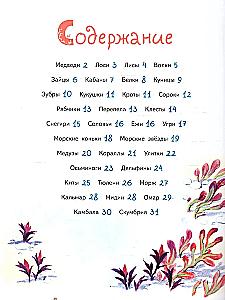 Содержание
Медведи 2 Лоси 3 Лисы 4 Волки 5
Зайцы 6 Кабаны 7 Белки 8 Куницы 9
Зубры 10 Кукушки 11 Кроты 11 Сороки 12
Рябчики 13 Перепела 13 Клесты 14
Снегири 15 Соловьи 16 Ежи 16 Ужи 17
Морские коньки 18 Морские звёзды 19
Медузы 20 Кораллы 21 Улитки 22
Осьминоги 23 Дельфины 24
Киты 25 Тюлени 26 Морж 27
Кальмар 28 Мидии 28 Омар 29
Камбала 30 Скумбрия 31